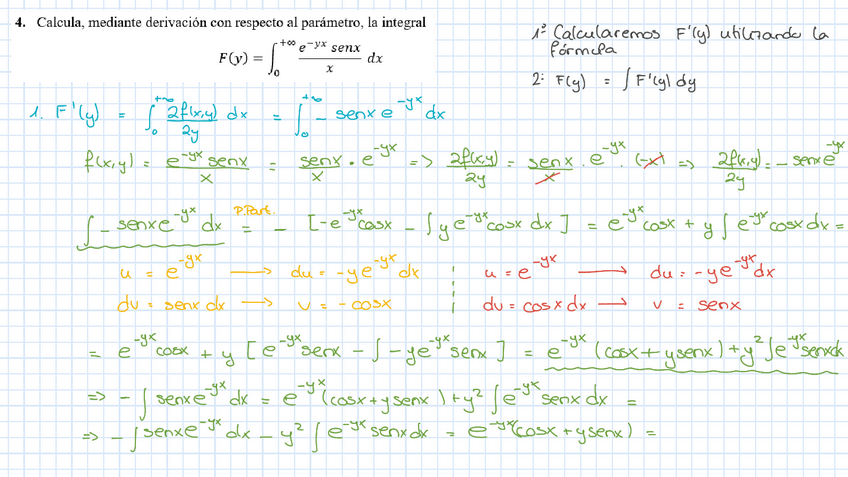 4. Calcula, mediante derivación con respecto al parámetro, la integral
F(y) = ∫₀^{+∞} (e^{-yx} senx)/x dx
1º Calcularemos F'(y) utilizando la
fórmula
2: F(y) = ∫ F'(y) dy
1. F'(y) = ∫₀^{+∞} ∂f(x,y)/∂y dx = ∫₀^{+∞} - senx e^{-yx} dx
f(x,y) = (e^{-yx} senx)/x = senx/x · e^{-yx} => ∂f(x,y)/∂y = senx/x · e^{-yx} · (-x) => ∂f(x,y)/∂y = - senx e^{-yx}
∫ - senx e^{-yx} dx = P.Part. - [-e^{-yx} cosx - ∫ y e^{-yx} cosx dx] = e^{-yx} cosx + y ∫ e^{-yx} cosx dx =
u = e^{-yx} → du = -ye^{-yx} dx u = e^{-yx} → du = -ye^{-yx} dx
dv = senx dx → v = -cosx dv = cosx dx → v = senx
= e^{-yx} cosx + y [e^{-yx} senx - ∫ -ye^{-yx} senx] = e^{-yx} (cosx + y senx) + y² ∫ e^{-yx} senx dx
=> - ∫ senx e^{-yx} dx = e^{-yx} (cosx + y senx) + y² ∫ e^{-yx} senx dx =
=> - ∫ senx e^{-yx} dx - y² ∫ e^{-yx} senx dx = e^{-yx} (cosx + y senx) =